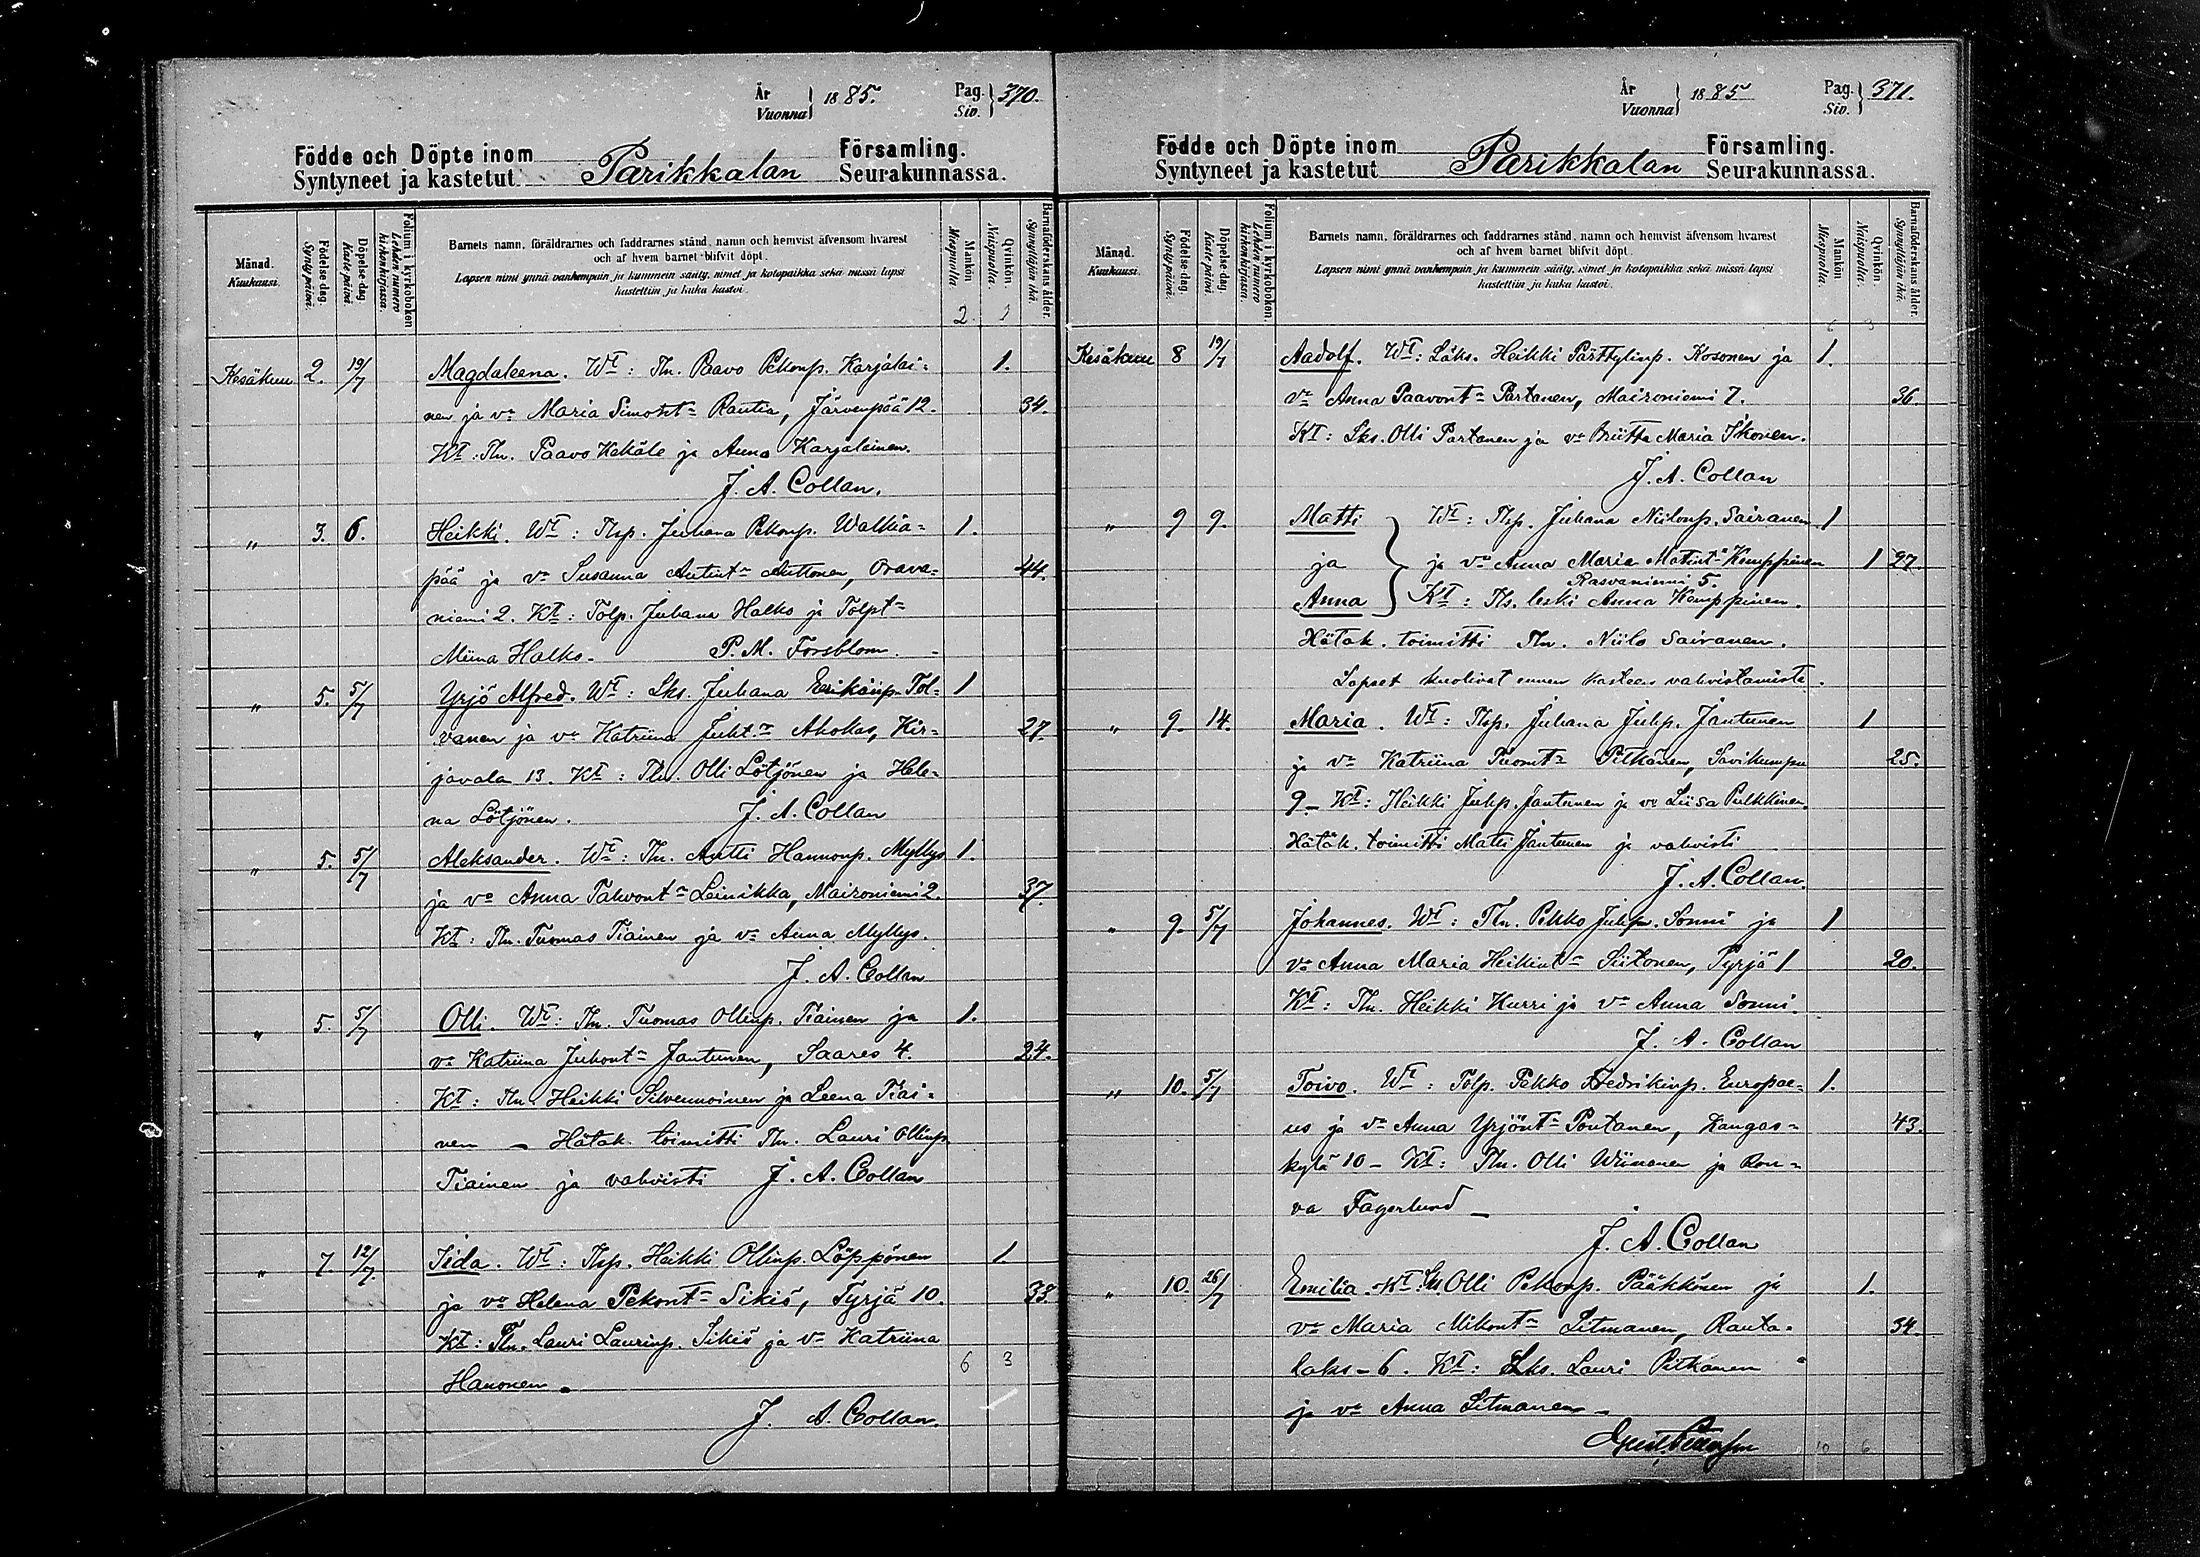 År
Vuonna } 1885. Pag. Siv. } 370.
Födde och Döpte inom Parikkalan Församling.
Syntyneet ja kastetut Seurakunnassa.
Månad. Kuukausi.
Födelse-dag. Syntypäivä.
Döpelse-dag. Kastepäivä.
Folium i kyrkoboken. Lehden numero kirkonkirjassa.
Barnets namn, föräldrarnes och faddrarnes stånd, namn och hemvist äfvensom hvarest
och af hvem barnet blifvit döpt.
Lapsen nimi ynnä vanhempain ja kummein sääty, nimet ja kotopaikka sekä missä lapsi
kastettiin ja kuka kastoi.
Mankön Miespuolia.
Qvinkön. Naispuolia.
Barnaföderskans ålder. Synnyttäjän ikä.
2
Kesäkuu 2. 19/7 Magdaleena. Wt: Tln. Paavo Pekonp. Karjalai= 1.
nen ja vo Maria Simont. Rautia, Järvenpää 12. 34.
Kt: Tln. Paavo Kekäle ja Anna Karjalainen.
J. A. Collan.
" 3. 6. Heikki. Wt: Tlsp. Juhana Pekonp. Walkia= 1.
pää ja vo Susanna Antint. Anttonen, Orava= 44.
niemi 2. Kt: Tolp. Juhana Halko ja Tolpt=
Miina Halko. P. M. Forsblom.
" 5. 5/7 Yrjö Alfred. Wt: Lks. Juhana Erikinp. Tol= 1
vanen ja vo Katriina Juht. Ahokas, Kir= 27.
javala 13. Kt: Tln. Olli Lötjönen ja Hele=
na Lötjönen. J. A. Collan
" 5. 5/7 Aleksander. Wt: Tln. Antti Hannonp. Myllys 1.
ja vo Anna Tahvont. Leinikka, Maironiemi 2. 37.
Kt: Tln. Tuomas Tiainen ja vo Anna Myllys.
J. A. Collan
" 5. 5/7 Olli. Wt: Tln. Tuomas Ollinp. Tiainen ja 1.
vo Katriina Juhont. Jantunen, Saares 4. 24.
Kt: Tln. Heikki Silvennoinen ja Leena Tiai=
nen – Hätäk. toimitti Tln. Lauri Ollinp.
Tiainen ja vahvisti J. A. Collan
" 7. 12/7. Iida. Wt: Tlsp. Heikki Ollinp. Löppönen 1.
ja vo Helena Pekont. Sikiö, Tyrjä 10. 38.
Kt: Tln. Lauri Laurinp. Sikiö ja vo Katriina
Hanonen. 6 3
J. A. Collan.
År
Vuonna } 1885 Pag. Siv. } 371.
Födde och Döpte inom Parikkalan Församling.
Syntyneet ja kastetut Seurakunnassa.
Månad. Kuukausi.
Födelse-dag. Syntypäivä.
Döpelse-dag. Kastepäivä.
Folium i kyrkoboken. Lehden numero kirkonkirjassa.
Barnets namn, föräldrarnes och faddrarnes stånd, namn och hemvist äfvensom hvarest
och af hvem barnet blifvit döpt.
Lapsen nimi ynnä vanhempain ja kummein sääty, nimet ja kotopaikka sekä missä lapsi
kastettiin ja kuka kastoi.
Mankön Miespuolia.
Qvinkön. Naispuolia.
Barnaföderskans ålder. Synnyttäjän ikä.
6 3
Kesäkuu 8 19/7 Aadolf. Wt: Läks. Heikki Pärttylinp. Kosonen ja 1.
vo Anna Paavont. Partanen, Maironiemi 7. 36.
Kt: Lks. Olli Partanen ja vo Briitta Maria Ikonen.
J. A. Collan
" 9 9. Matti Wt: Tlsp. Juhana Niilonp. Sairanen 1
ja ja vo Anna Maria Matint. Kemppinen 1 27
Rasvaniemi 5.
Anna Kt: Tls. leski Anna Kemppinen.
Hätäk. toimitti Tln. Niilo Sairanen.
Lapset kuolivat ennen kasteen vahvistamista.
" 9. 14. Maria. Wt: Tlsp. Juhana Juhp. Jantunen 1
ja vo Katriina Tuomt. Pitkänen, Savikumpu 25.
9 – Kt: Heikki Juhp. Jantunen ja vo Liisa Pulkkinen.
Hätäk. toimitti Matti Jantunen ja vahvisti
J. A. Collan.
" 9. 5/7 Johannes. Wt: Tln. Pekko Juhp. Sonni ja 1
vo Anna Maria Heikint. Siitonen, Tyrjä 1 20.
Kt: Tln. Heikki Kurri ja vo Anna Sonni.
J. A. Collan
" 10. 5/7 Toivo. Wt: Tolp. Pekko Fredrikinp. Europae= 1.
us ja vo Anna Yrjönt. Pontanen, Kangas= 43.
kylä 10 – Kt: Tln. Olli Wiinanen ja Rou=
va Fagerlund –
J. A. Collan
" 10. 26/7 Emilia. Olli Pekonp. Pääkkönen ja 1.
vo Maria Mikont. Litmanen, Rauta= 34.
laks – 6. Kt: Lks. Lauri Pitkänen
ja vo Anna Litmanen –
10 6